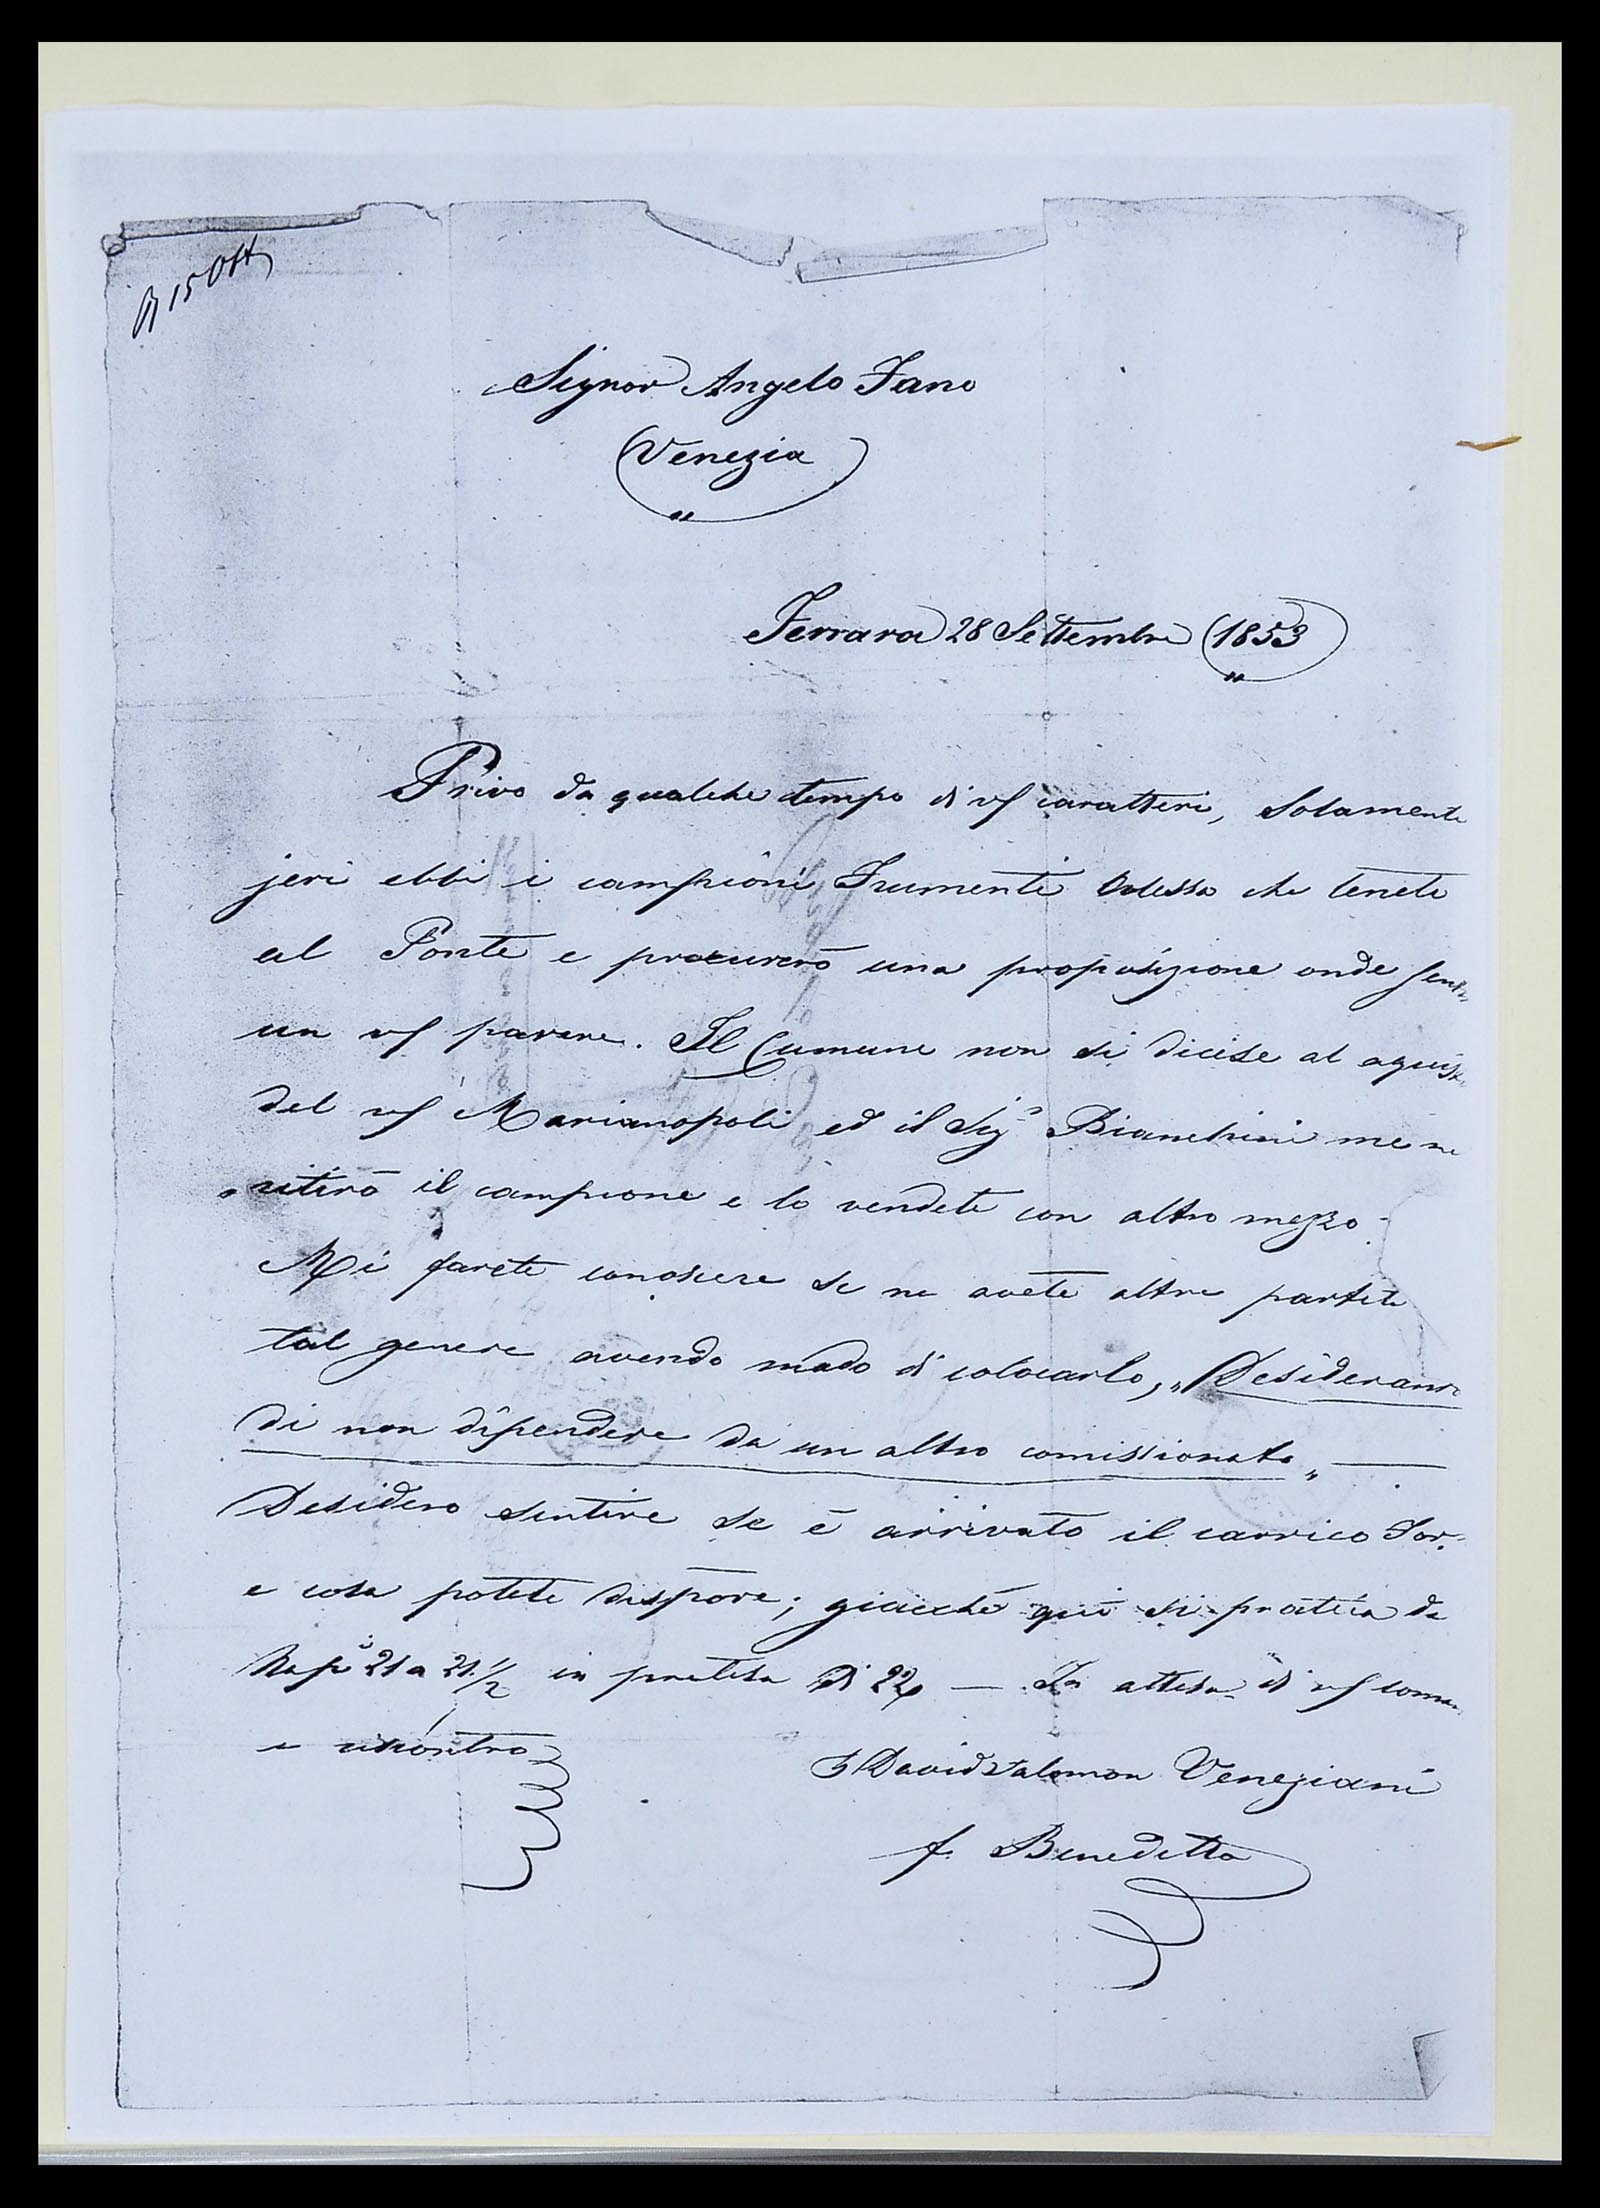 R 15 Ott
Signor Angelo Fano
Venezia
Ferrara 28 Settembre 1853
Privo da qualche tempo di vs caratteri, Solamente
jeri ebbi i campioni Frumenti Odessa che tenete
al Ponte e procurerò una proposizione onde
un vs parere. Il Cumune non si dicise al
del vs Marianopoli ed il Sigr Bianchini me ne
ritirò il campione e lo vendete con altro mezzo.
Mi farete conoscere se ne avete altre partite
tal genere avendo modo di colocarlo, „Desiderando
di non dipendere da un altro comissionato„ —
Desidero sentire se è arrivato il carrico For.
e cosa potete dispore; giacchè quì si pratica da
Napi 21 a 21 1/2 in pretesa di 22 — In attesa di vs
e riscontro
David Salomon Veneziani
f. Benedetto